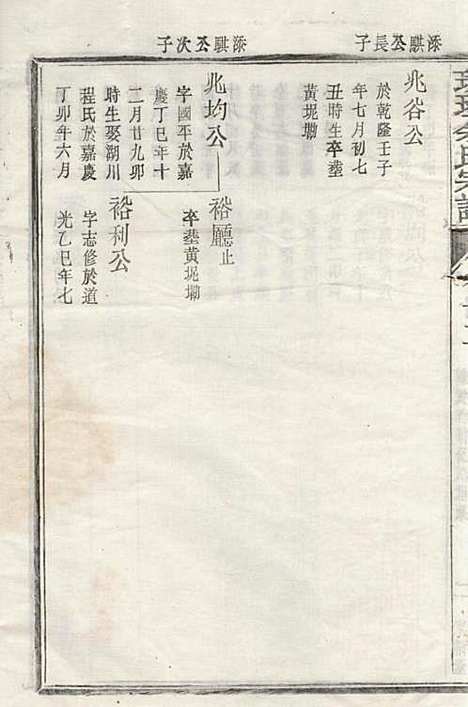 添騏公長子
兆谷公
於乾隆壬子
年七月初七
丑時生卒塟
黃坭塝
添騏公次子
兆均公
字國平於嘉
慶丁巳年十
二月廿九卯
時生娶湖川
程氏於嘉慶
丁卯年六月
裕廳止
卒塟黃坭塝
裕利公
字志修於道
光乙巳年七